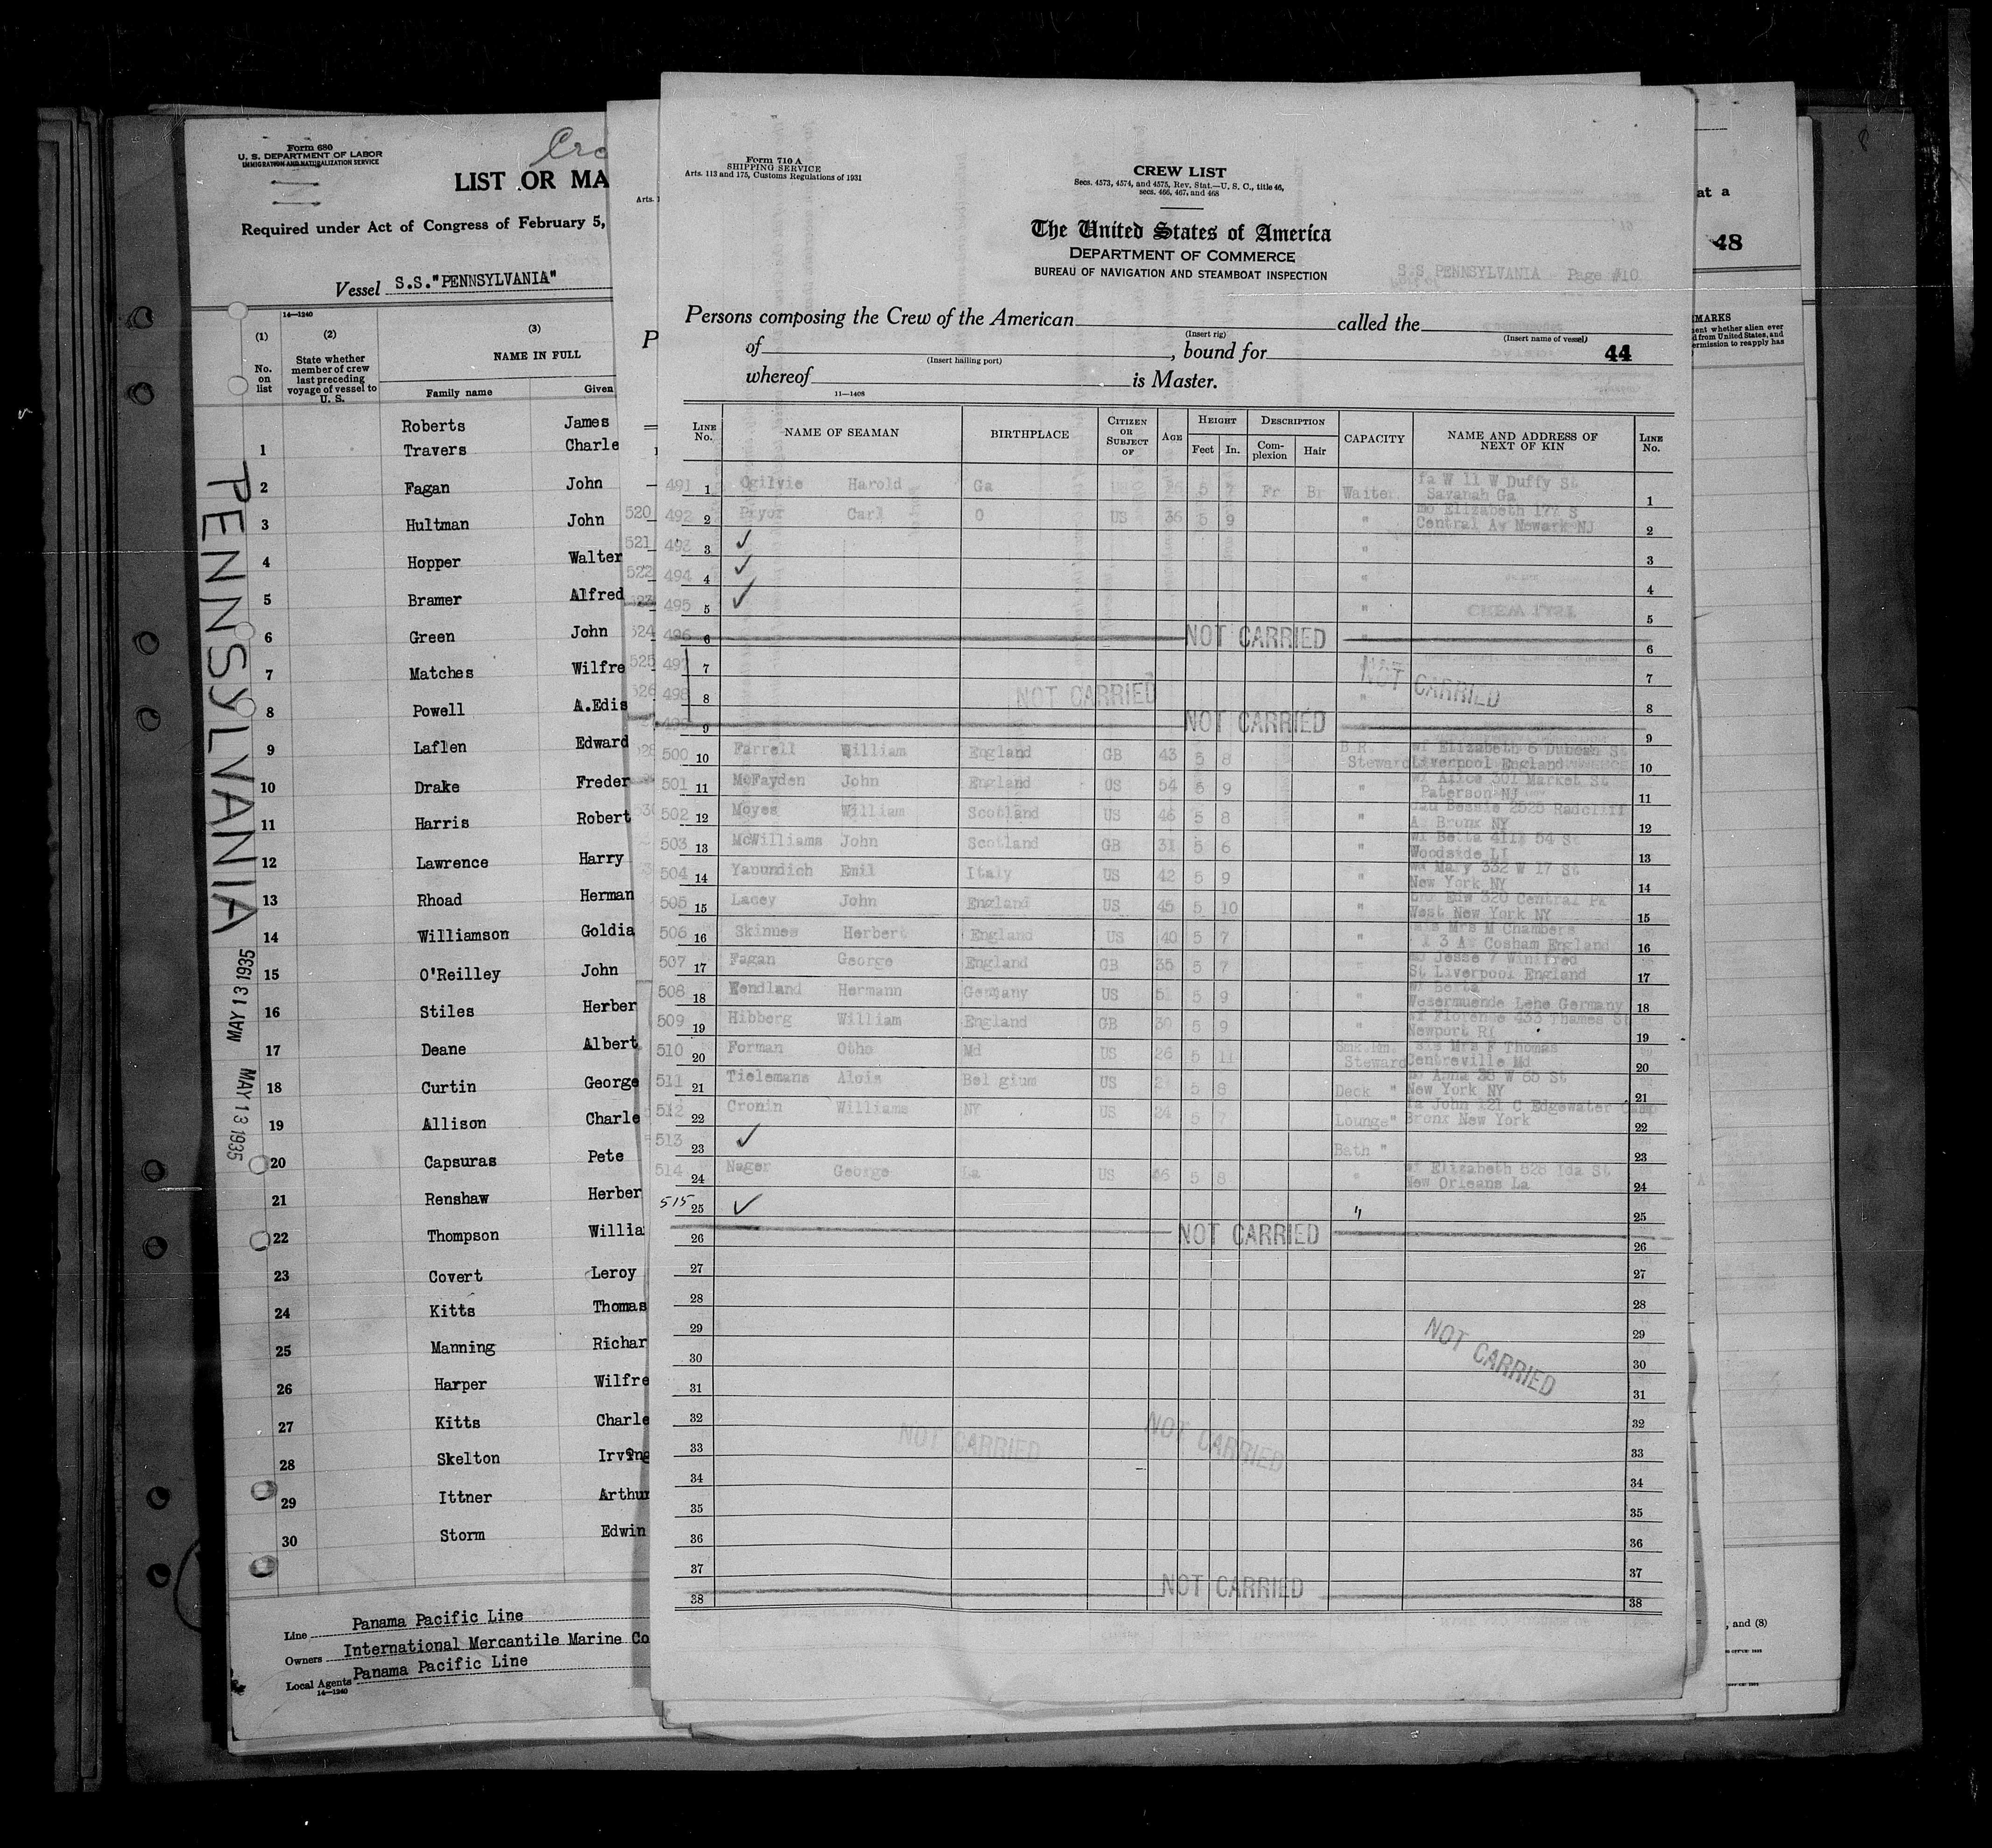 Form 680
U. S. DEPARTMENT OF LABOR
IMMIGRATION AND NATURALIZATION SERVICE
LIST OR MA
Required under Act of Congress of February 5,
Vessel S.S."PENNSYLVANIA"
14—1240
(1) (2) (3)
No. on list
State whether member of crew last preceding voyage of vessel to U. S.
NAME IN FULL
Family name Given
Roberts James
1 Travers Charle
2 Fagan John
3 Hultman John
4 Hopper Walter
5 Bramer Alfred
6 Green John
7 Matches Wilfre
8 Powell A.Edis
9 Laflen Edward
10 Drake Freder
11 Harris Robert
12 Lawrence Harry
13 Rhoad Herman
14 Williamson Goldia
15 O'Reilley John
16 Stiles Herber
17 Deane Albert
18 Curtin George
19 Allison Charle
20 Capsuras Pete
21 Renshaw Herber
22 Thompson Willia
23 Covert Leroy
24 Kitts Thomas
25 Manning Richar
26 Harper Wilfre
27 Kitts Charle
28 Skelton Irving
29 Ittner Arthur
30 Storm Edwin
Line Panama Pacific Line
Owners International Mercantile Marine Co
Local Agents Panama Pacific Line
14—1240
PENNSYLVANIA
MAY 13 1935
MAY 13 1935
Form 710 A
SHIPPING SERVICE
Arts. 113 and 175, Customs Regulations of 1931
CREW LIST
Secs. 4573, 4574, and 4575, Rev. Stat.—U. S. C., title 46,
secs. 466, 467, and 468
The United States of America
DEPARTMENT OF COMMERCE
BUREAU OF NAVIGATION AND STEAMBOAT INSPECTION
S.S. PENNSYLVANIA Page #10
Persons composing the Crew of the American called the
(Insert rig) (Insert name of vessel)
of , bound for 44
(Insert hailing port)
whereof is Master.
11—1408
LINE No. NAME OF SEAMAN BIRTHPLACE CITIZEN OR SUBJECT OF AGE HEIGHT Feet In. DESCRIPTION Complexion Hair CAPACITY NAME AND ADDRESS OF NEXT OF KIN LINE No.
491 1 Ogilvie Harold Ga 5 7 Fr Br Waiter fa W 11 W Duffy St Savanah Ga 1
492 2 Pryor Carl O US 36 5 9 " mo Elizabeth 177 S Central Av Newark NJ 2
493 3 ✓ " 3
494 4 ✓ " 4
495 5 ✓ " 5
496 6 NOT CARRIED 6
497 7 7
498 8 NOT CARRIED NOT CARRIED 8
9 NOT CARRIED 9
500 10 Farrell William England GB 43 5 8 B.R. Steward wf Elizabeth 6 St Liverpool England 10
501 11 McFayden John England US 54 5 9 " wf Alice 301 Market St Paterson NJ 11
502 12 Moyes William Scotland US 46 5 8 " dau Bessie 2525 Radcliff Av Bronx NY 12
503 13 McWilliams John Scotland GB 31 5 6 " wf Betta 54 St Woodside LI 13
504 14 Yanundich Emil Italy US 42 5 9 " Mary 332 W 17 St New York NY 14
505 15 Lacey John England US 45 5 10 " 320 Central Pk West New York NY 15
506 16 Skinnes Herbert England US 40 5 7 " Mrs M Chambers 3 Av Cosham England 16
507 17 Fagan George England GB 35 5 7 " Jesse 7 Winifred St Liverpool England 17
508 18 Wendland Hermann Germany US 5 9 " wf Berta Wesermuende Lehe Germany 18
509 19 Hibberg William England GB 30 5 9 " wf Florence 433 Thames St Newport RI 19
510 20 Forman Otho Md US 26 5 11 Smk.Rm. Steward sis Mrs F Thomas Centreville Md 20
511 21 Tielemans Alois Belgium US 5 8 Deck " Anna 38 W 65 St New York NY 21
512 22 Cronin Williams NY US 24 5 7 Lounge " fa John 121 C Edgewater Camp Bronx New York 22
513 23 ✓ Bath " 23
514 24 Nager George La US 46 5 8 " wf Elizabeth 528 Ida St New Orleans La 24
515 25 ✓ " 25
26 NOT CARRIED 26
27 27
28 28
29 29
30 NOT CARRIED 30
31 31
32 32
33 NOT CARRIED NOT CARRIED 33
34 34
35 35
36 36
37 37
38 NOT CARRIED 38
520
521
522
524
525
526
at a
48
MARKS
ent whether alien ever
d from United States, and
ermission to reapply has
, and (8)